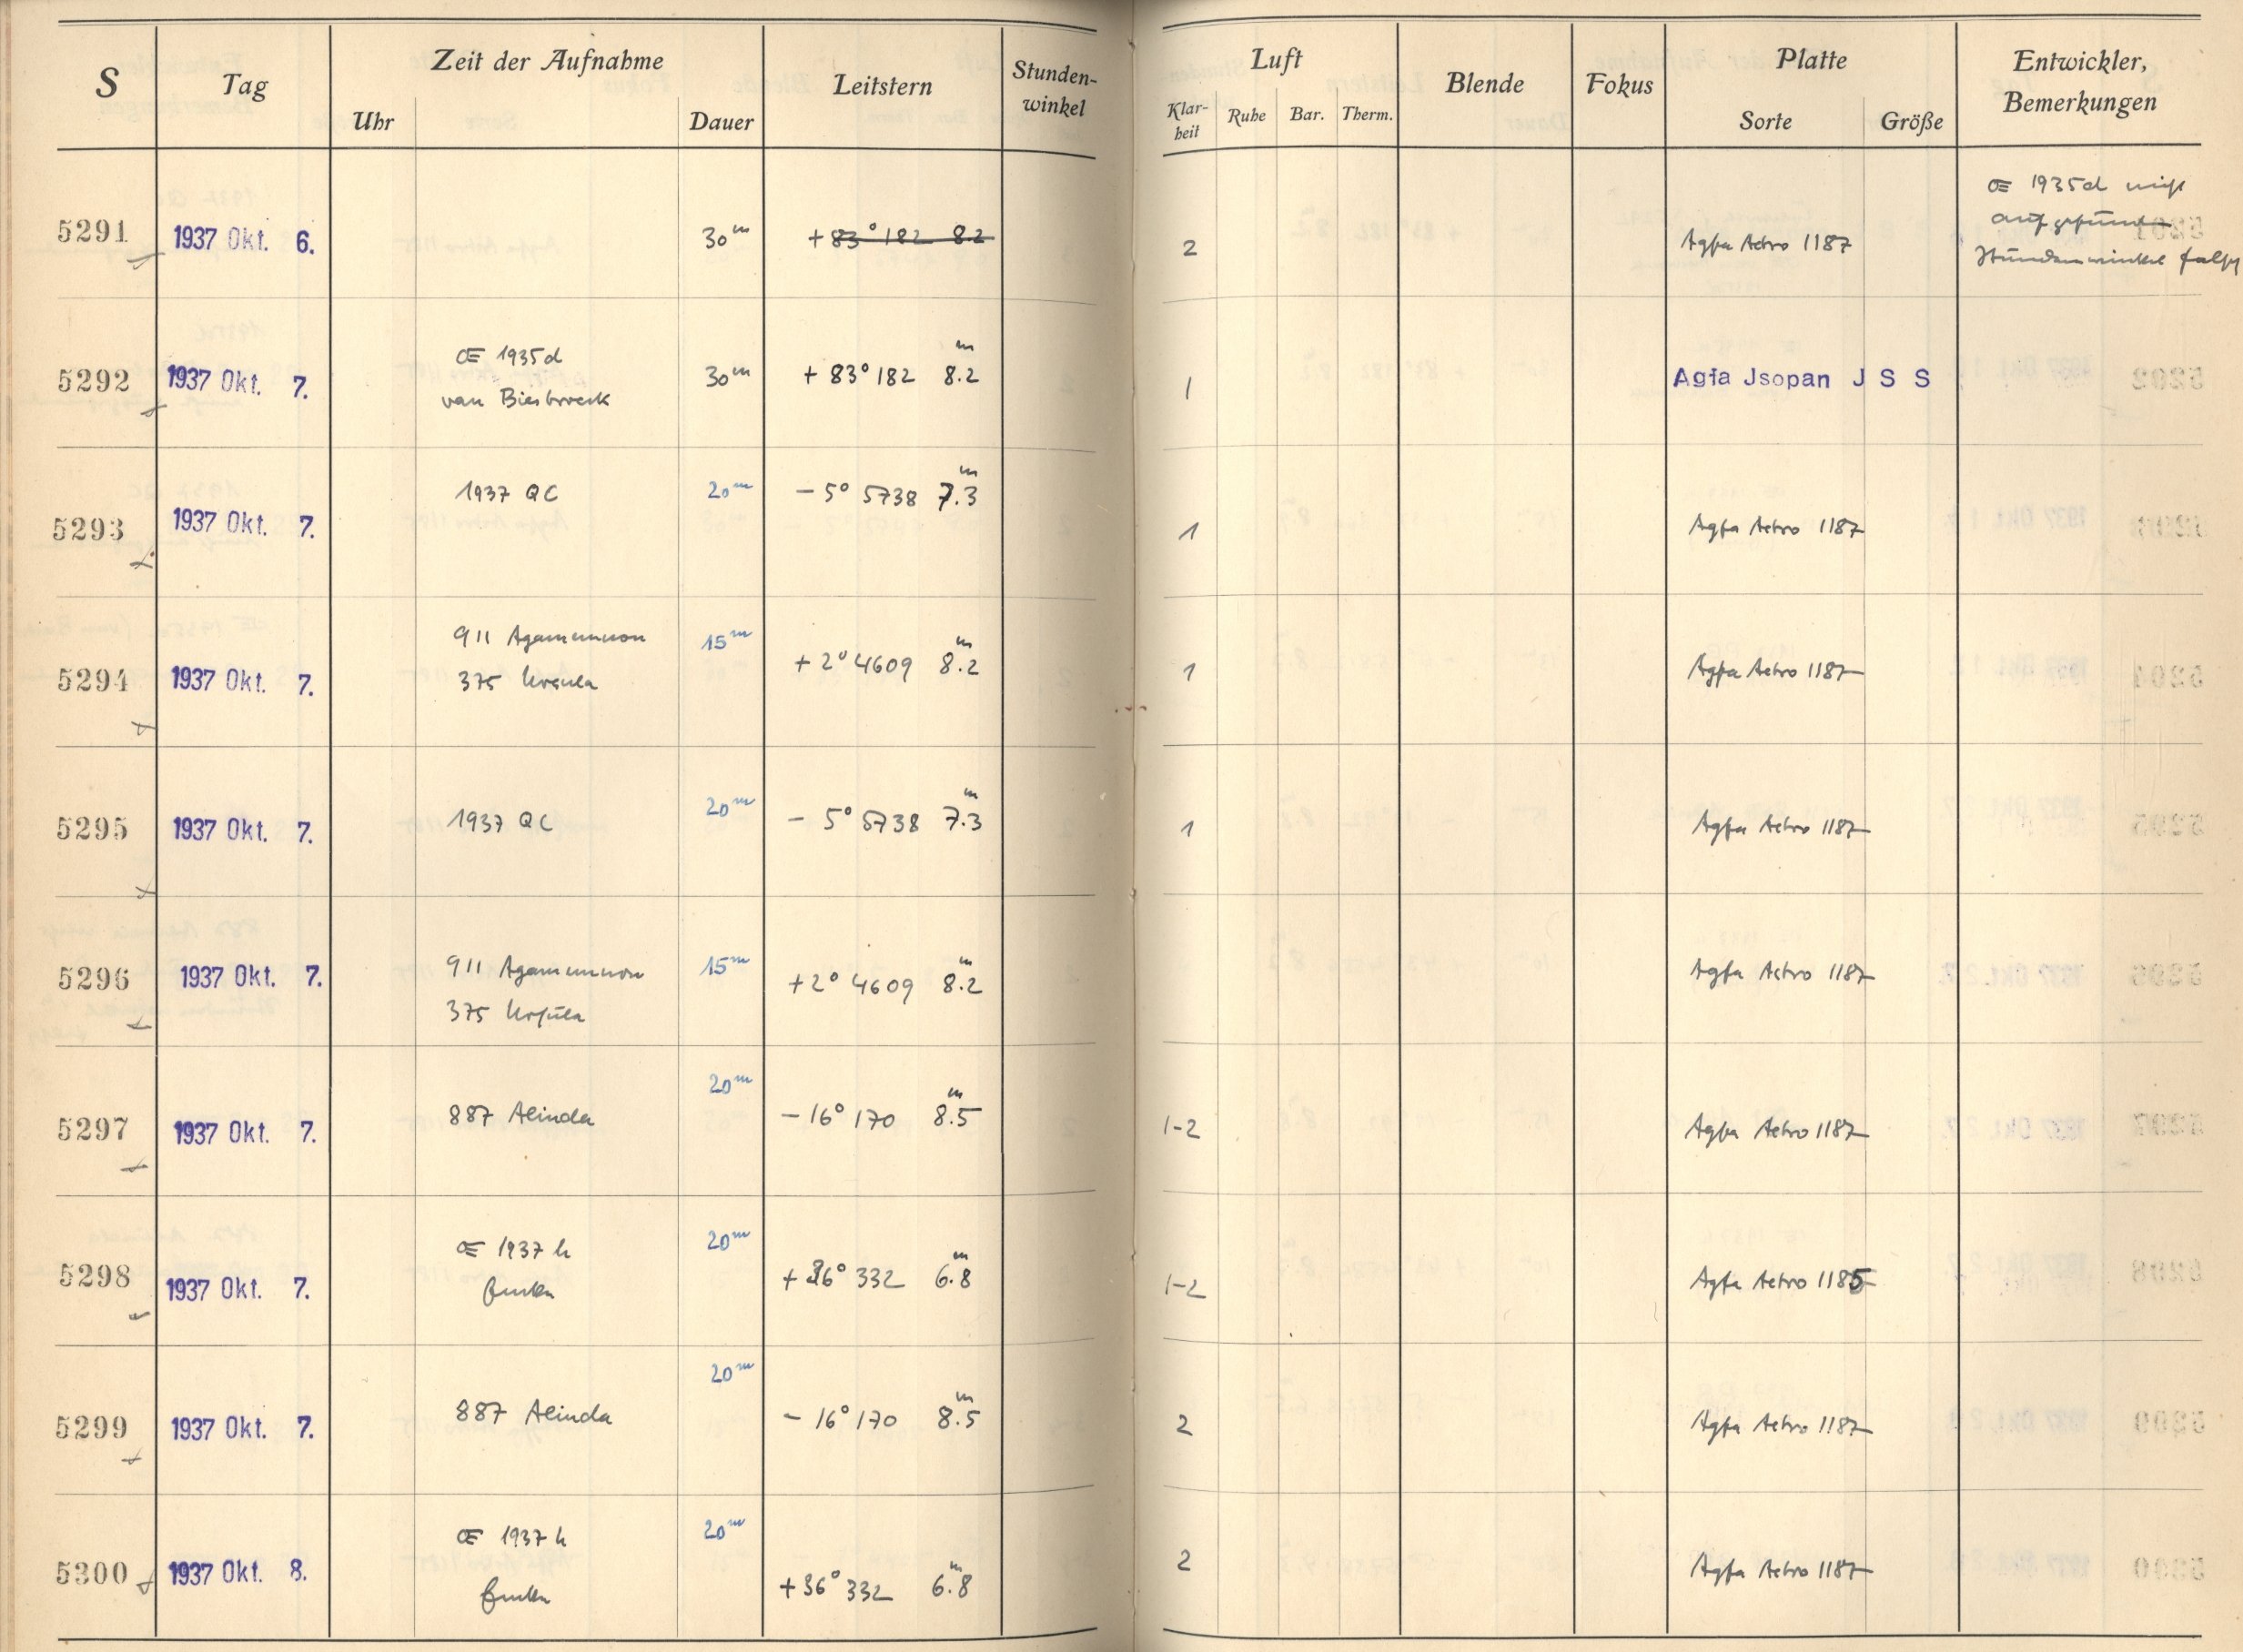 S Tag Zeit der Aufnahme Leitstern Stunden-winkel Luft Blende Fokus Platte Entwickler, Bemerkungen
Uhr Dauer Klar-heit Ruhe Bar. Therm. Sorte Größe
5291 1937 Okt. 6. 30m +83° 182 8.2 2 Agfa Astro 1187 1935d nicht
aufgefunden
Stundenwinkel falsch
5292 1937 Okt. 7. 1935d 30m +83° 182 8.2m 1 Agfa Jsopan J S S
van Biesbroeck
5293 1937 Okt. 7. 1937 QC 20m -5° 5738 7.3m 1 Agfa Astro 1187
5294 1937 Okt. 7. 911 Agamemnon 15m +2° 4609 8.2m 1 Agfa Astro 1187
375 Ursula
5295 1937 Okt. 7. 1937 QC 20m -5° 5738 7.3m 1 Agfa Astro 1187
5296 1937 Okt. 7. 911 Agamemnon 15m +2° 4609 8.2m Agfa Astro 1187
375 Ursula
5297 1937 Okt. 7. 887 Alinda 20m -16° 170 8.5m 1-2 Agfa Astro 1187
5298 1937 Okt. 7. 1937 h 20m +36° 332 6.8m 1-2 Agfa Astro 1185
5299 1937 Okt. 7. 887 Alinda 20m -16° 170 8.5m 2 Agfa Astro 1187
5300 1937 Okt. 8. 1937 h 20m +36° 332 6.8m 2 Agfa Astro 1187